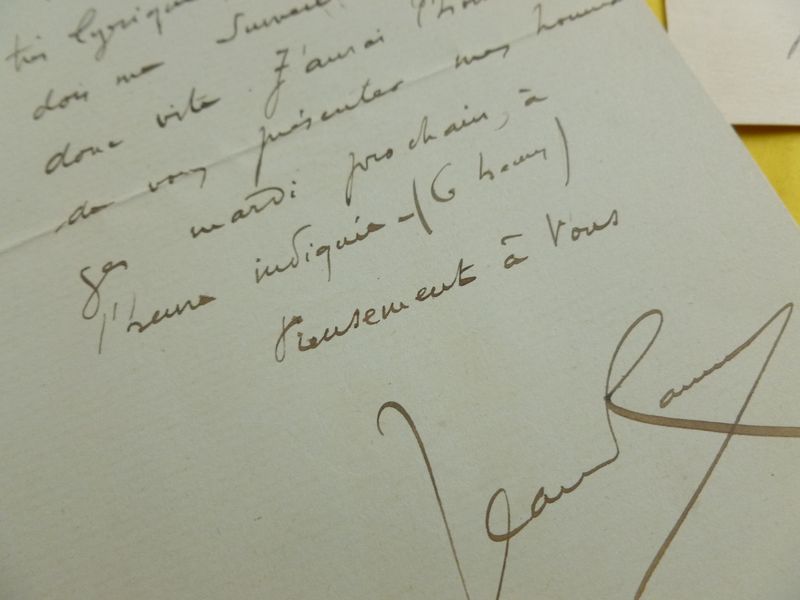 très lyrique
dois me surveil
donc vite. J'aurai l'hon
de vous présenter mes homma
ges mardi prochain, à
l'heure indiquée - (6 heures)
Pieusement à Vous
Jean